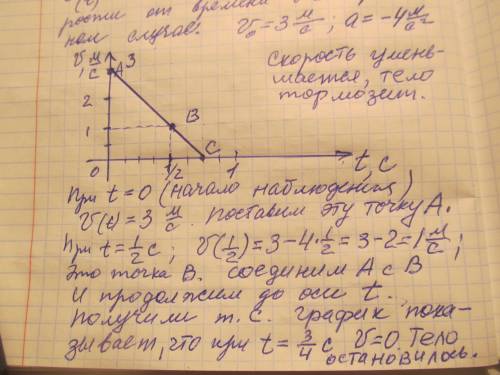 рости от времени
ном случае. V₀ = 3 м/с; a = -4 м/с²
Скорость умень-
шается, тело
тормозит.
V, м/с
3
A
2
1
B
C
0
1/2
1
t, c
При t = 0 (начало наблюдения)
V(t) = 3 м/с. Поставим эту точку A.
При t = 1/2 c; V(1/2) = 3 - 4·1/2 = 3 - 2 = 1 м/с;
Это точка B. Соединим A с B
и продолжим до оси t.
Получили т. C. График пока-
зывает, что при t = 3/4 c V = 0. Тело
остановилось.